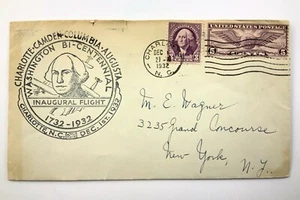 CHARLOTTE-CAMDEN-COLUMBIA-AUGUSTA
WASHINGTON BI-CENTENNIAL
INAUGURAL FLIGHT
1732-1932
CHARLOTTE, N.C. DEC. 1st, 1932
CHARLOTTE
DEC
1932
N.C.
UNITED STATES POSTAGE
5 5
M. E. Wagner
3235 Grand Concourse
New York, N.Y.